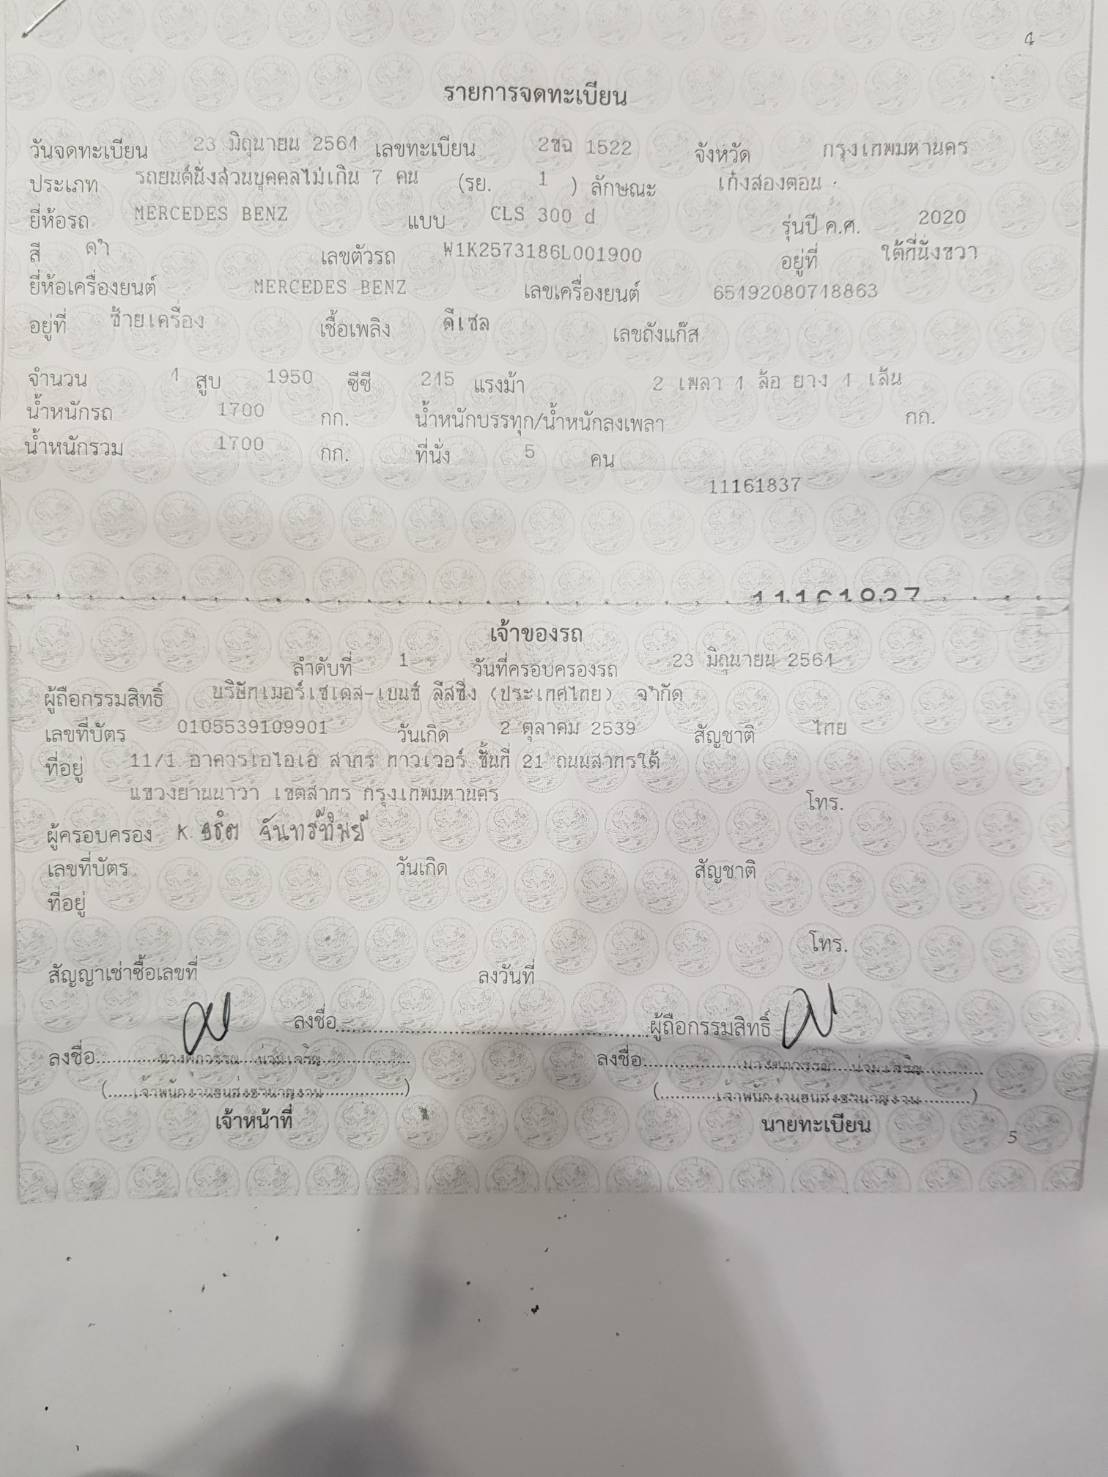 4
รายการจดทะเบียน
วันจดทะเบียน 23 มิถุนายน 2564 เลขทะเบียน 2ขฉ 1522 จังหวัด กรุงเทพมหานคร
ประเภท รถยนต์นั่งส่วนบุคคลไม่เกิน 7 คน (รย. 1 ) ลักษณะ เก๋งสองตอน
ยี่ห้อรถ MERCEDES BENZ แบบ CLS 300 d รุ่นปี ค.ศ. 2020
สี ดำ เลขตัวรถ W1K2573186L001900 อยู่ที่ ใต้ที่นั่งขวา
ยี่ห้อเครื่องยนต์ MERCEDES BENZ เลขเครื่องยนต์ 65492080748863
อยู่ที่ ซ้ายเครื่อง เชื้อเพลิง ดีเซล เลขถังแก๊ส
จำนวน 4 สูบ 1950 ซีซี 245 แรงม้า 2 เพลา 4 ล้อ ยาง 4 เส้น
น้ำหนักรถ 1700 กก. น้ำหนักบรรทุก/น้ำหนักลงเพลา กก.
น้ำหนักรวม 1700 กก. ที่นั่ง 5 คน
11161837
เจ้าของรถ
ลำดับที่ 1 วันที่ครอบครองรถ 23 มิถุนายน 2564
ผู้ถือกรรมสิทธิ์ บริษัทเมอร์เซเดส-เบนซ์ ลีสซิ่ง (ประเทศไทย) จำกัด
เลขที่บัตร 0105539109901 วันเกิด 2 ตุลาคม 2539 สัญชาติ ไทย
ที่อยู่ 11/1 อาคารเอไอเอ สาทร ทาวเวอร์ ชั้นที่ 21 ถนนสาทรใต้
แขวงยานนาวา เขตสาทร กรุงเทพมหานคร โทร.
ผู้ครอบครอง K. จันทร์ทิพย์
เลขที่บัตร วันเกิด สัญชาติ
ที่อยู่
โทร.
สัญญาเช่าซื้อเลขที่ ลงวันที่
ลงชื่อ ผู้ถือกรรมสิทธิ์
ลงชื่อ ลงชื่อ
(เจ้าพนักงานขนส่งชำนาญงาน) (เจ้าพนักงานขนส่งชำนาญงาน)
เจ้าหน้าที่ นายทะเบียน
5